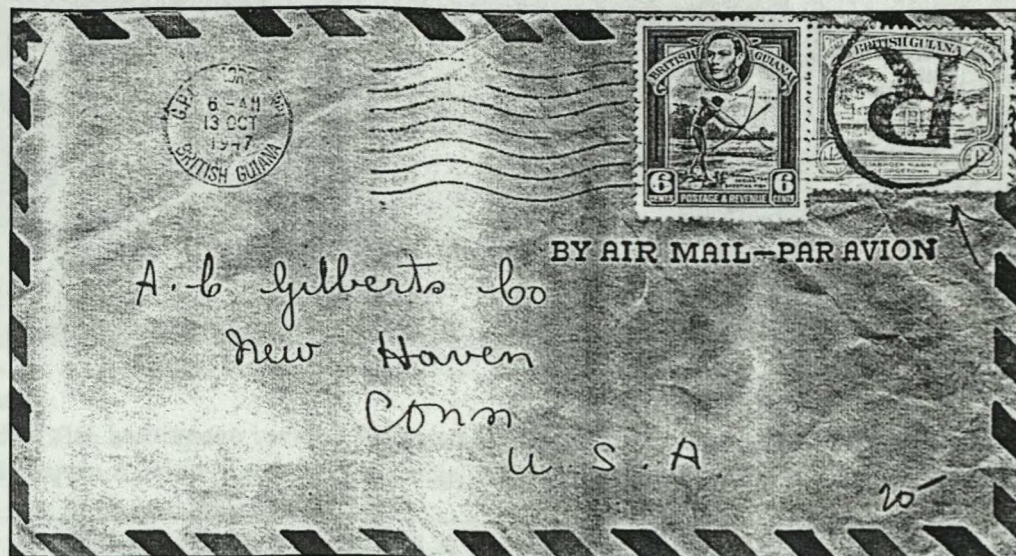 6 - AM
13 OCT
1947
BRITISH GUIANA
BRITISH GUIANA
6 CENTS POSTAGE & REVENUE 6 CENTS
BRITISH GUIANA
R
BY AIR MAIL—PAR AVION
A. C Gilberts Co
New Haven
Conn
U. S. A
20-